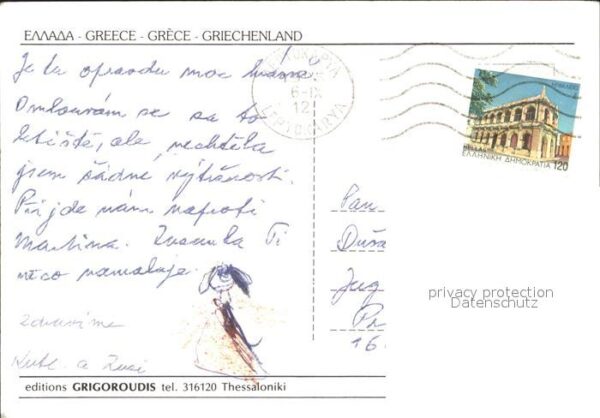 ΕΛΛΑΔΑ - GREECE - GRÈCE - GRIECHENLAND
Je tu opravdu moc krásně
Omlouvám se za to
letiště, ale nechtěla
jsem žádné výtržnosti.
Přijde nám naproti
Martina. Zuzanka Ti
něco namaluje.
zdravíme
a Zuzi
ΛΕΠΤΟΚΑΡΥΑ
6-IX
12
LEPTOKARYA
ΕΛΛΗΝΙΚΗ ΔΗΜΟΚΡΑΤΙΑ 120
Pan
Duša
Jug
16
privacy protection
Datenschutz
editions GRIGOROUDIS tel. 316120 Thessaloniki